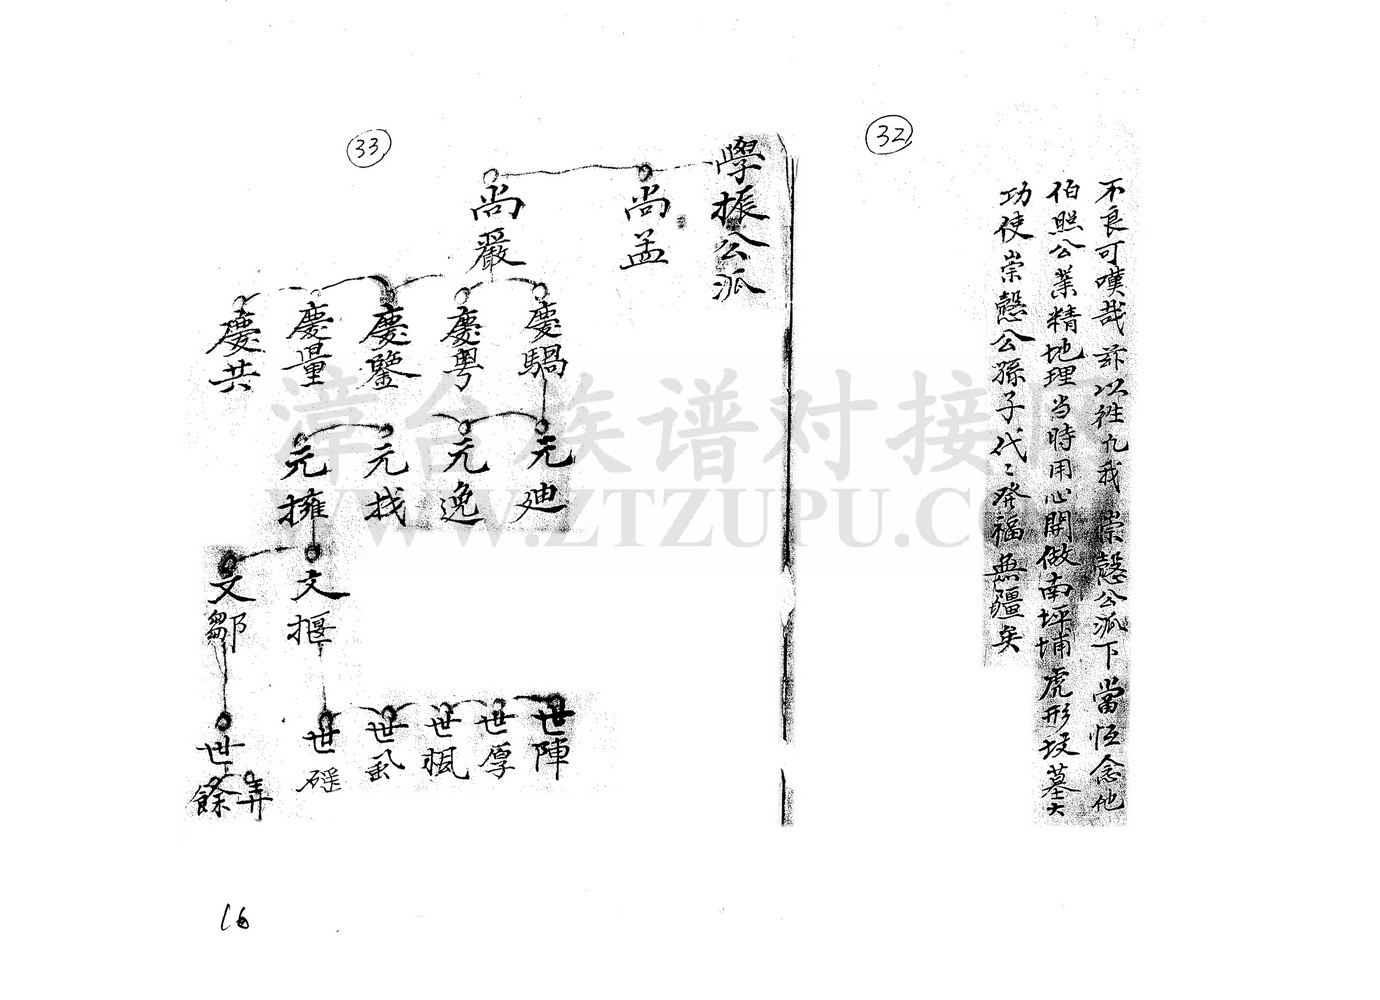 32
不良可嘆哉茲以往凡我 崇慤公派下當恆念他
伯照公業精地理当時用心開做南坪埔虎形坟墓大
功使崇慤公孫子代〻發福無疆矣
33
學振公派
尚孟
尚嚴
慶騧
慶粵
慶鑒
慶量
慶共
元迪
元逸
元找
元擁
文握
文鄒
世陣
世厚
世
世
世
世餘
弄
16
漳台族谱对接
WWW.ZTZUPU.CO